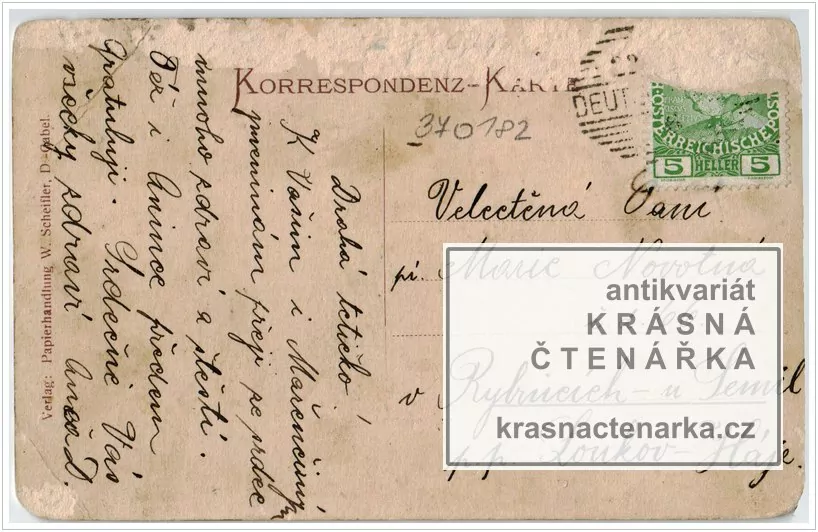 KORRESPONDENZ-KARTE
370182
DEUT
POST
ÖSTERREICHISCHE
POST
5 HELLER 5
Drahá tetičko!
K Vašim i Mařenčiným
jmeninám přeji ze srdce
mnoho zdraví a štěstí.
Též i Anince předem
Gratuluji. Srdečně Vás
všechny zdraví
Velectěná Paní
pí. Marie Novotná
v Rybnicích - u Semil
p.p. Loukov - Háje.
Verlag: Papierhandlung W. Scheifler, D.-Gabel.
antikvariát
KRÁSNÁ
ČTENÁŘKA
krasnactenarka.cz